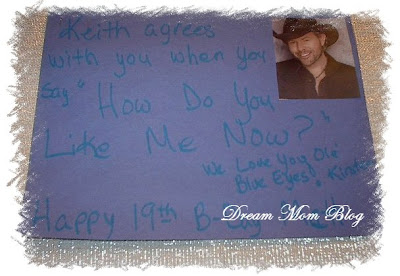 Keith agrees
with you when you
say "How Do You
Like Me Now?"
We Love You Ole
Blue Eyes! Kirsten
Happy 19th B-day
Dream Mom Blog